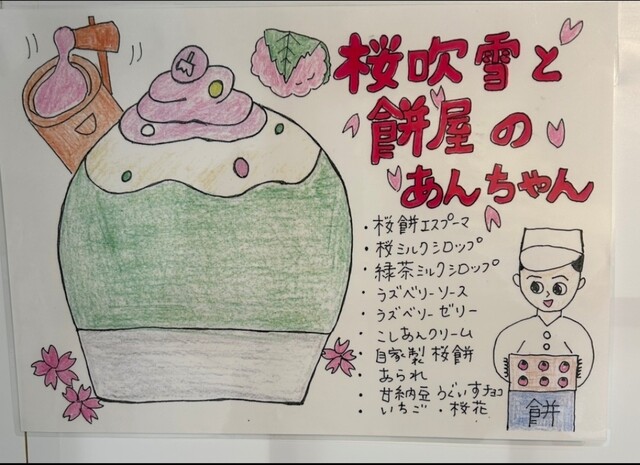 桜吹雪と
餅屋の
あんちゃん
・桜餅エスプーマ
・桜ミルクシロップ
・緑茶ミルクシロップ
・ラズベリーソース
・ラズベリーゼリー
・こしあんクリーム
・自家製桜餅
・あられ
・甘納豆 うぐいすチョコ
・いちご ・桜花
餅